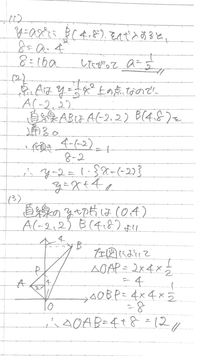 (1)
y=ax²に B(4,8) を代入すると,
8=a・4²
8=16a したがって a=1/2
(2)
点Aは y=1/2x² 上の点なので
A(-2,2)
直線ABは A(-2,2) B(4,8)を
通る。
∴ y-2=1・{x-(-2)}
y=x+4
(3)
直線の y切片は (0,4)
A(-2,2) B(4,8) より
左図において
△OAP=2×4×1/2
=4
△OBP=4×4×1/2
=8
∴ △OAB=4+8=12
y
4
B
P
A
2
4
O